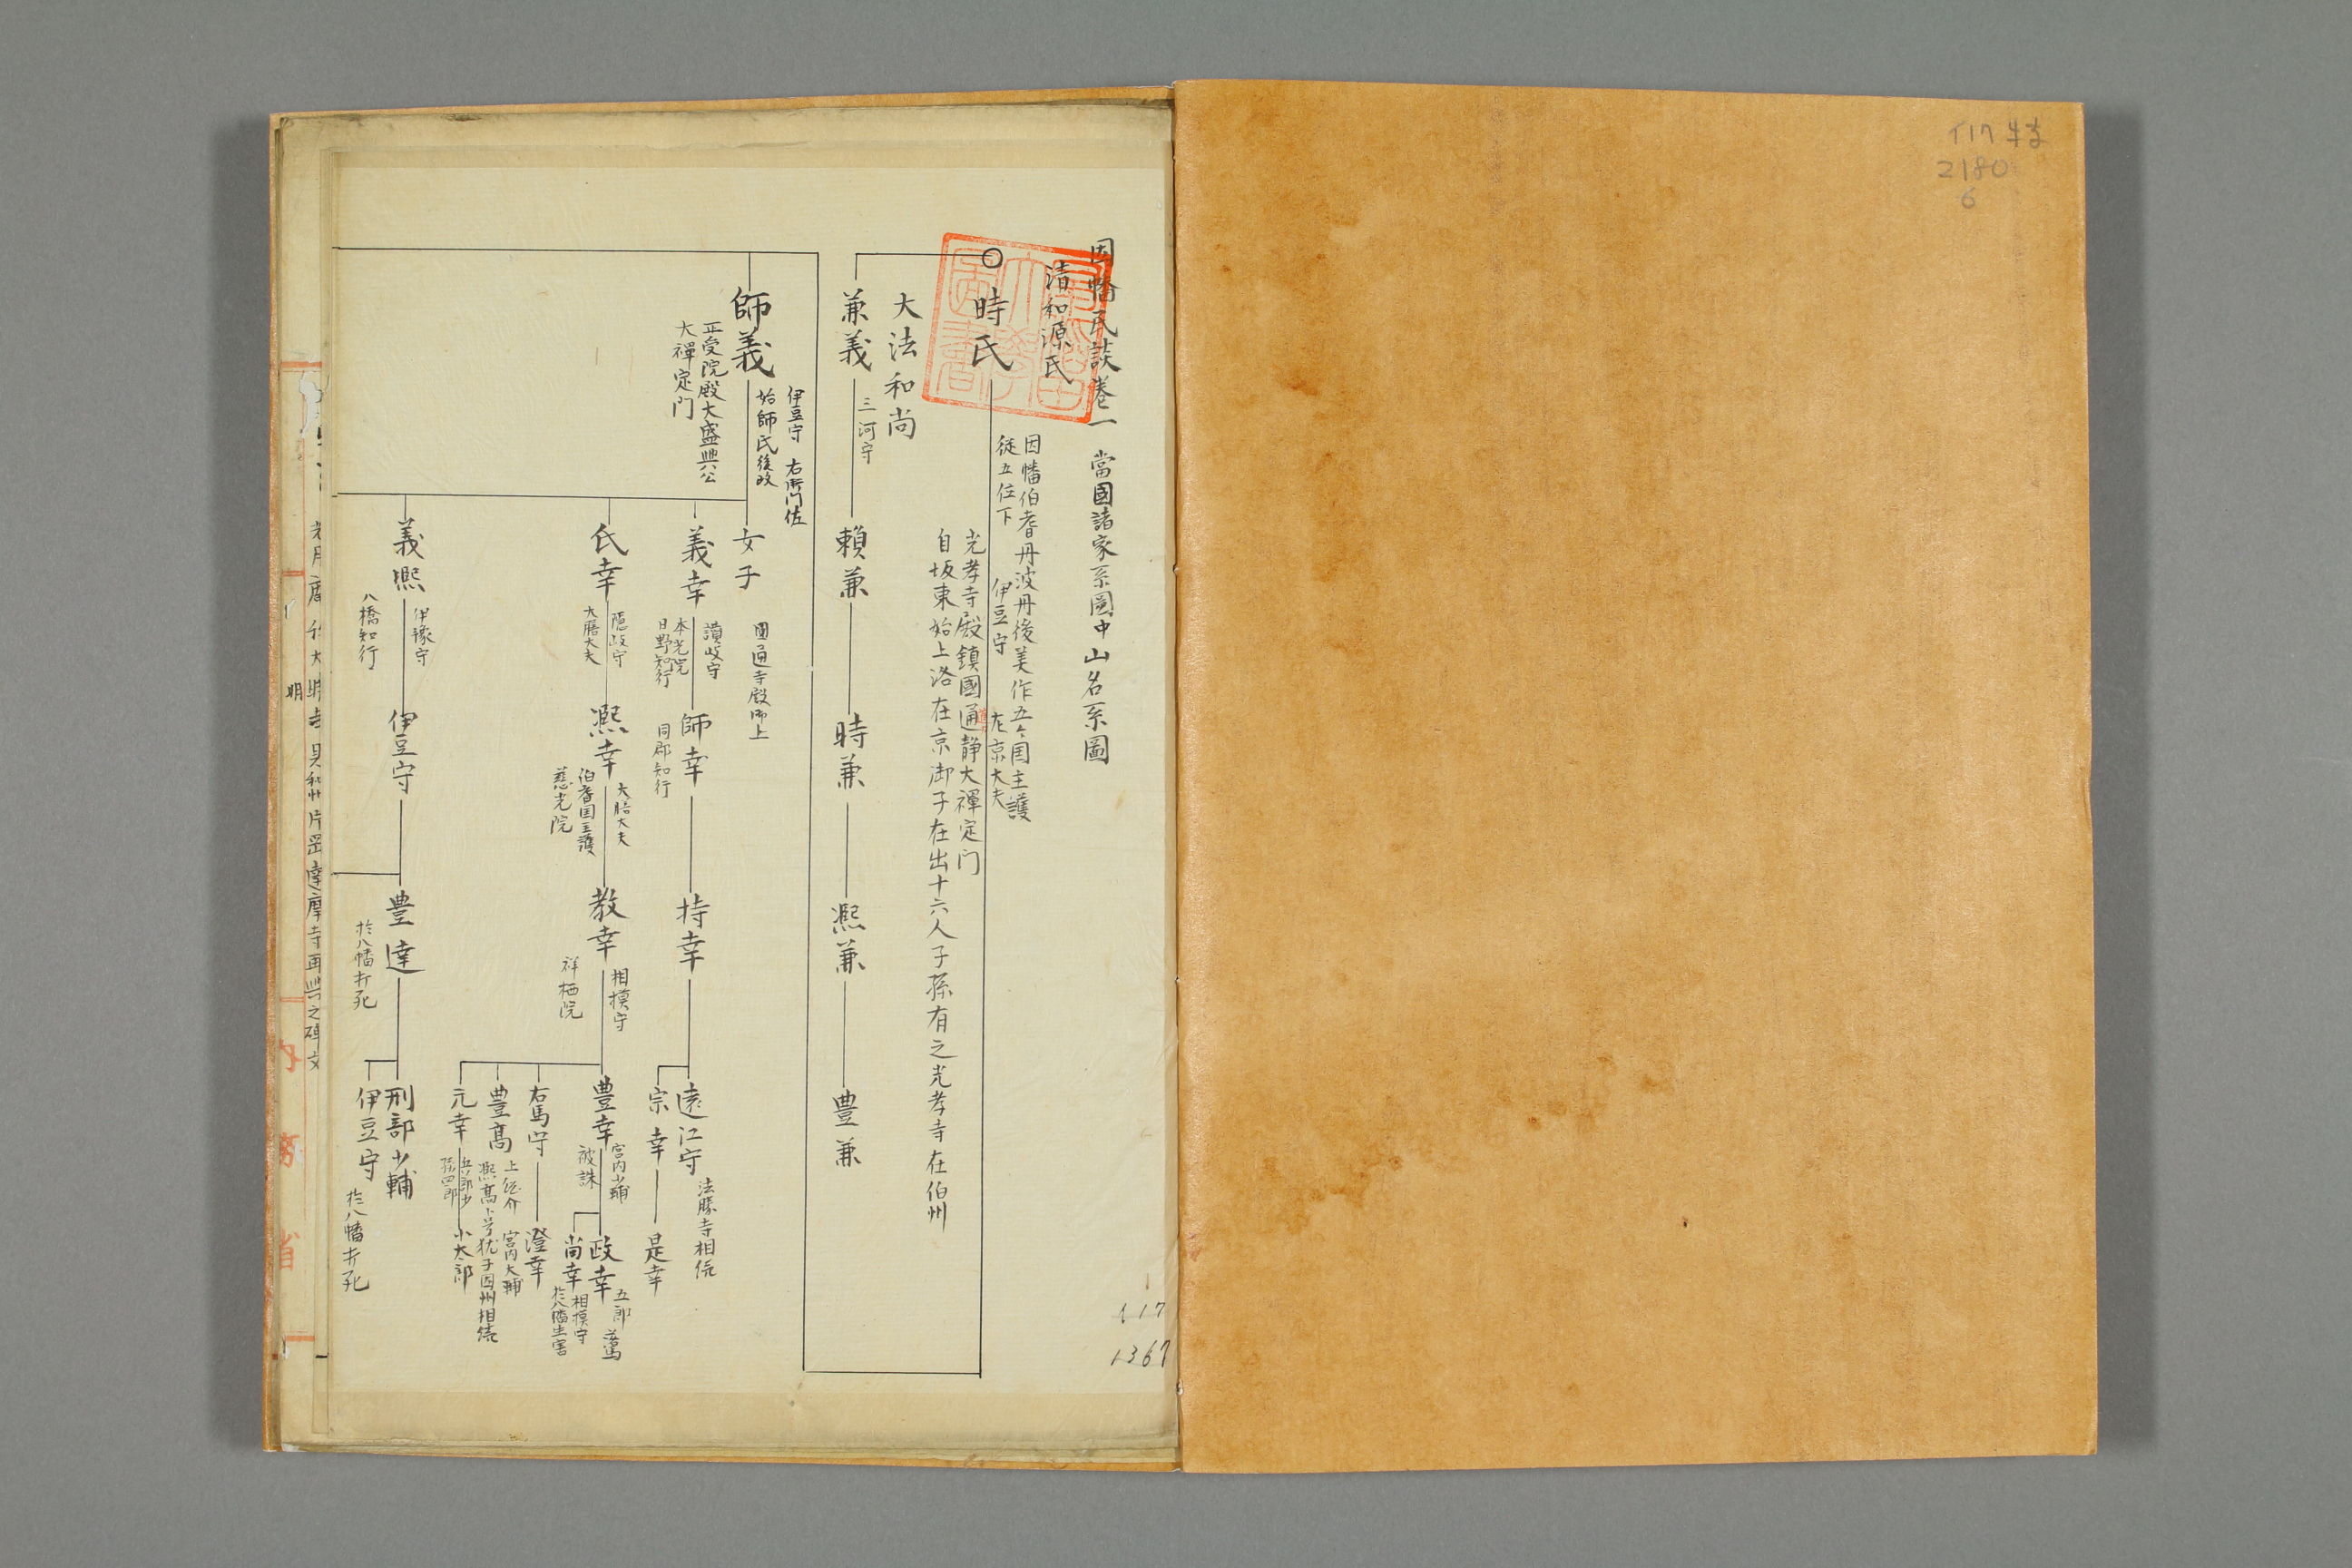 117 特
2180
6
因幡民談卷一 當國諸家系圖中山名系圖
清和源氏
時氏
因幡伯耆丹波丹後美作五ヶ国主護
従五位下 伊豆守 左京大夫
光孝寺殿鎮國通静大禅定门
自坂東始上洛在京御子在出十六人子孫有之光孝寺在伯州
大法和尚
兼義 三河守 頼兼 時兼 熈兼 豊兼
師義
伊豆守 右衛門佐
始師氏後改
正受院殿大盛興公
大禪定门
女子 圓通寺殿御上
義幸
讃岐守
本光院
日野知行
師幸
同郡知行
持幸
遠江守 法勝寺相続
宗幸 是幸
氏幸
隠岐守
大膳大夫
熈幸
大膳大夫
伯耆国主護
慈光院
教幸
相摸守
祥栖院
豊幸
宮内少輔
被誅
政幸 五郎
尚幸
相摸守
於八幡生害
右馬守 澄幸
豊髙
上総介 宮内大輔
元幸
孫四郎
小太郎
義熈
伊豫守
八橋知行
伊豆守
豊達
於八幡打死
刑部少輔
伊豆守
於八幡打死
117
1367
明
達摩寺再興之碑文
内務省